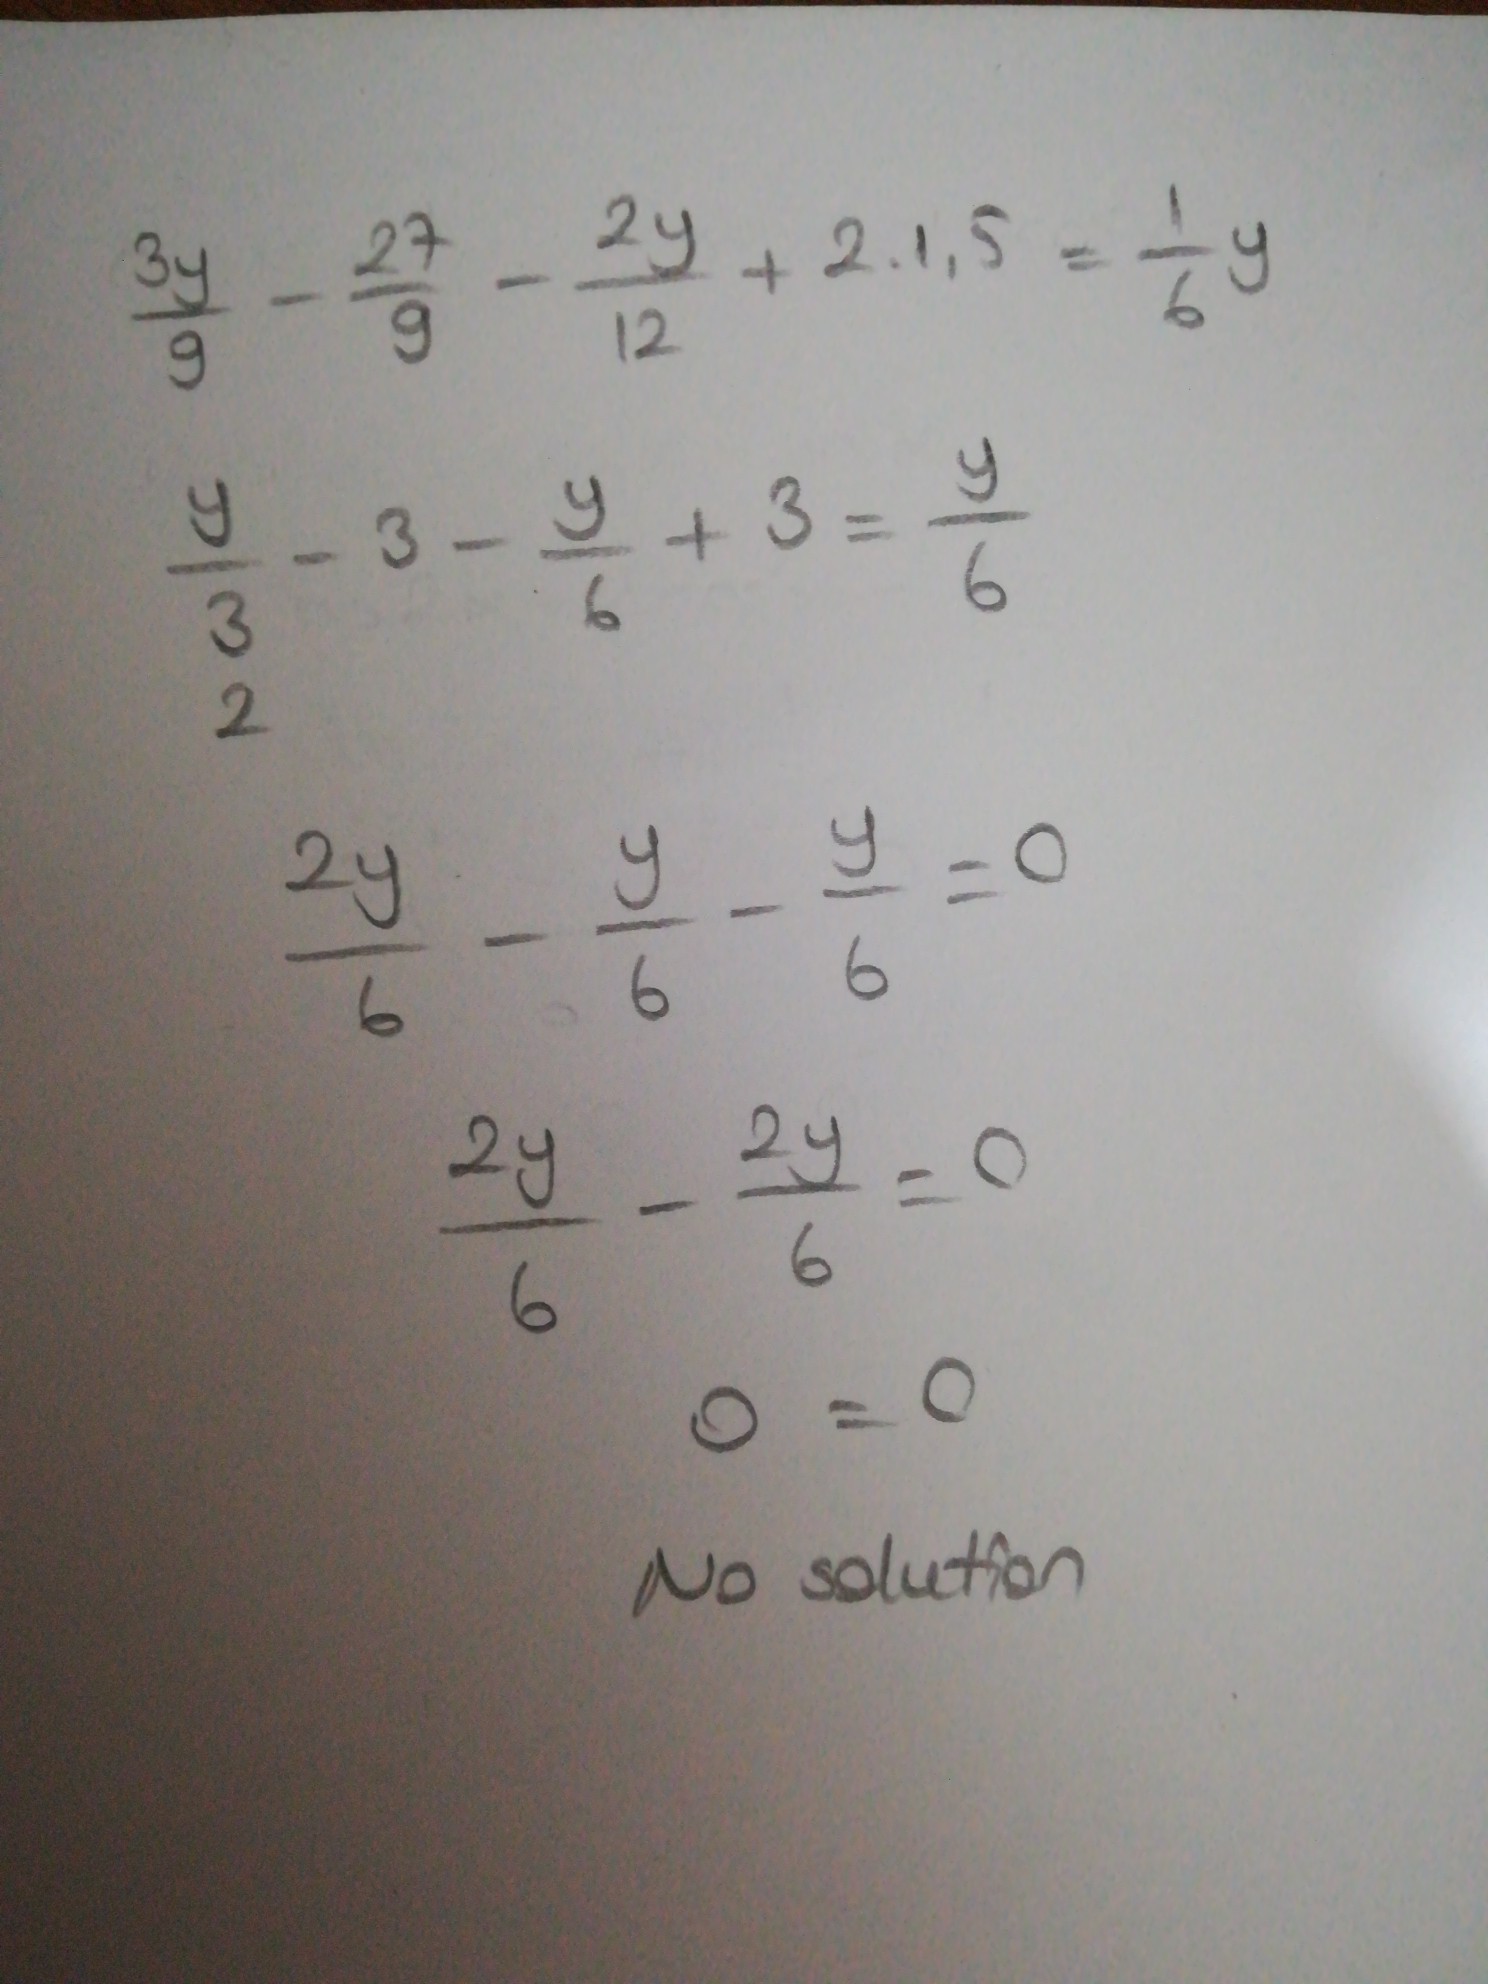 3y/9 - 27/9 - 2y/12 + 2.1,5 = 1/6 y
y/3 - 3 - y/6 + 3 = y/6
2
2y/6 - y/6 - y/6 = 0
2y/6 - 2y/6 = 0
0 = 0
No solution